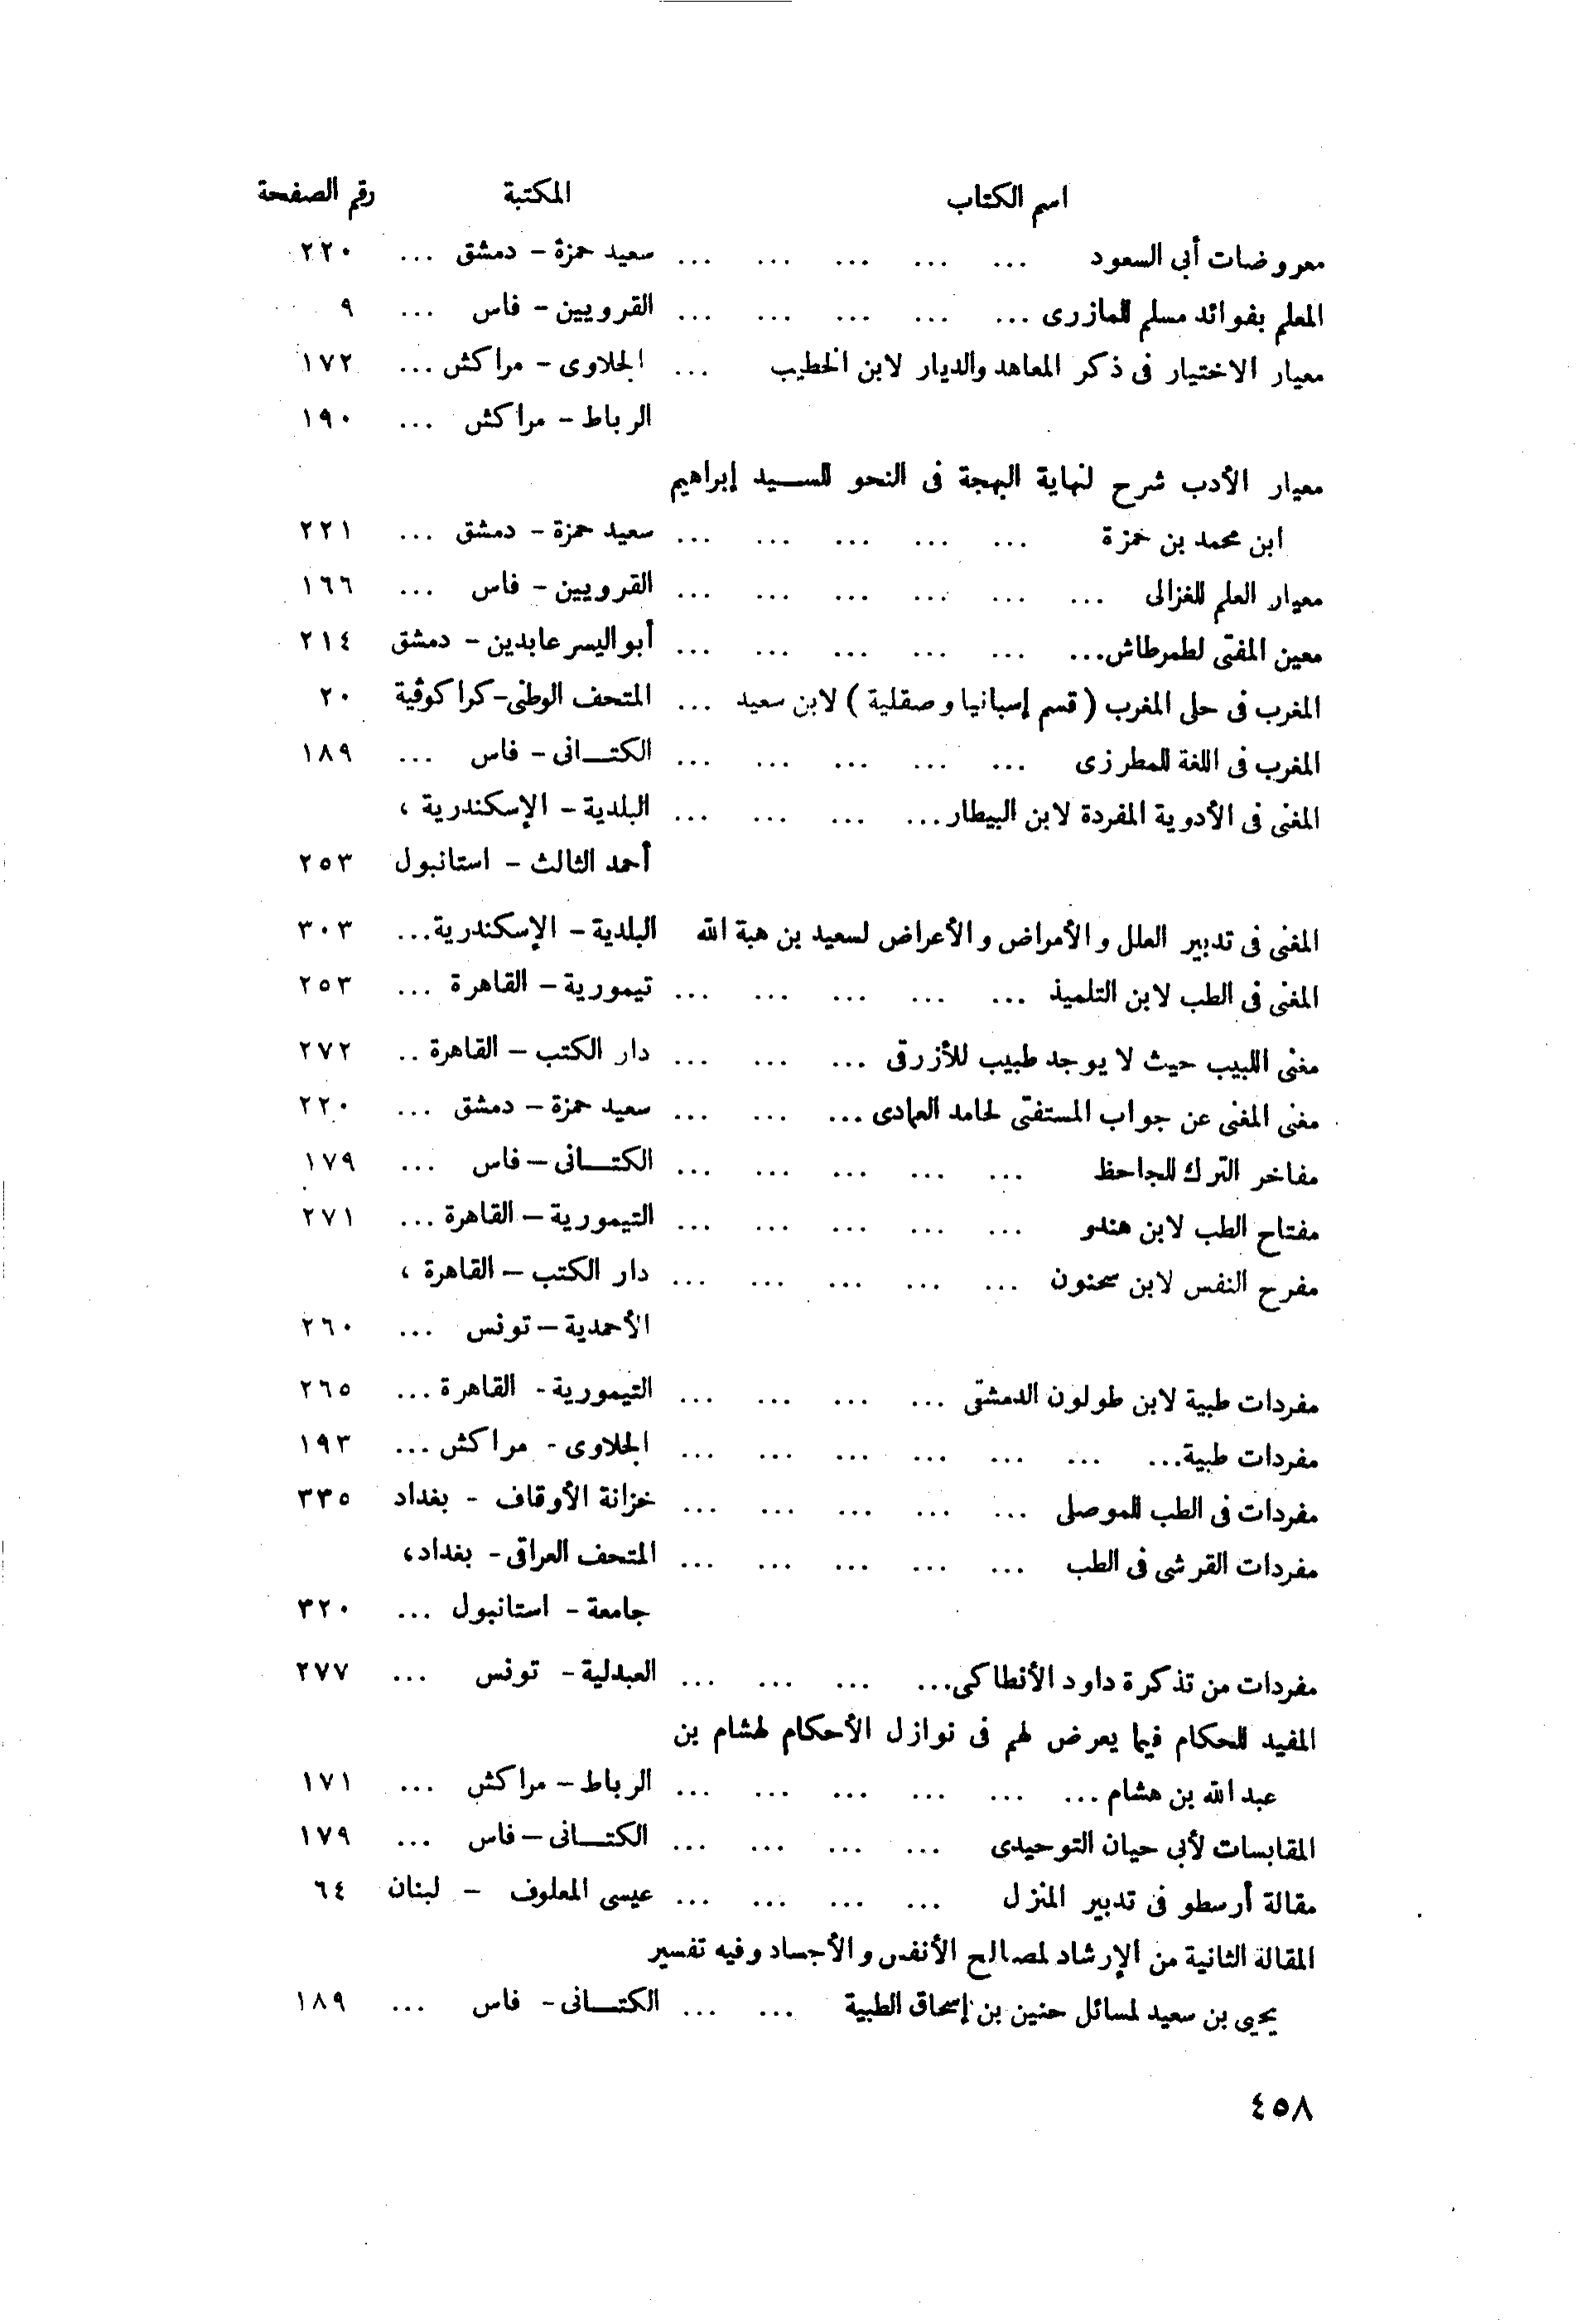 اسم الكتاب المكتبة رقم الصفحة
معروضات أبى السعود ... ... ... ... ... سعيد حمزة - دمشق ... ٢٢٠
المعلم بفوائد مسلم للمازرى ... ... ... ... ... القرويين - فاس ... ٩
معيار الاختيار فى ذكر المعاهد والديار لابن الخطيب ... الجلاوى - مراكش ... ١٧٢
الرباط - مراكش ... ١٩٠
معيار الأدب شرح لنهاية البهجة فى النحو للسيد إبراهيم
ابن محمد بن حمزة ... ... ... ... ... سعيد حمزة - دمشق ... ٢٢١
معيار العلم للغزالى ... ... ... ... ... ... القرويين - فاس ... ١٦٦
معين المفتى لطمرطاش ... ... ... ... ... ... أبو اليسر عابدين - دمشق ٢١٤
المغرب فى حلى المغرب ( قسم إسبانيا وصقلية ) لابن سعيد ... المتحف الوطنى - كراكوڤية ٢٠
المغرب فى اللغة للمطرزى ... ... ... ... ... الكتانى - فاس ... ١٨٩
المغنى فى الأدوية المفردة لابن البيطار ... ... ... ... البلدية - الإسكندرية ،
أحمد الثالث - استانبول ٢٥٣
المغنى فى تدبير العلل والأمراض والأعراض لسعيد بن هبة الله البلدية - الإسكندرية ... ٣٠٣
المغنى فى الطب لابن التلميذ ... ... ... ... ... تيمورية - القاهرة ... ٢٥٣
مغنى اللبيب حيث لا يوجد طبيب للأزرقى ... ... ... دار الكتب - القاهرة .. ٢٧٢
مغنى المغنى عن جواب المستفتى لحامد العمادى ... ... ... سعيد حمزة - دمشق ... ٢٢٠
مفاخر الترك للجاحظ ... ... ... ... ... الكتانى - فاس ... ١٧٩
مفتاح الطب لابن هندو ... ... ... ... ... التيمورية - القاهرة ... ٢٧١
مفرح النفس لابن سحنون ... ... ... ... ... دار الكتب - القاهرة ،
الأحمدية - تونس ... ٢٦٠
مفردات طبية لابن طولون الدمشقى ... ... ... ... التيمورية - القاهرة ... ٢٦٥
مفردات طبية ... ... ... ... ... ... ... الجلاوى - مراكش ... ١٩٣
مفردات فى الطب للموصلى ... ... ... ... ... خزانة الأوقاف - بغداد ٣٣٥
مفردات القرشى فى الطب ... ... ... ... ... المتحف العراقى - بغداد ،
جامعة - استانبول ... ٣٢٠
مفردات من تذكرة داود الأنطاكى ... ... ... ... العبدلية - تونس ... ٢٧٧
المفيد للحكام فيما يعرض لهم فى نوازل الأحكام لهشام بن
عبد الله بن هشام ... ... ... ... ... ... الرباط - مراكش ... ١٧١
المقابسات لأبى حيان التوحيدى ... ... ... ... الكتانى - فاس ... ١٧٩
مقالة أرسطو فى تدبير المنزل ... ... ... ... عيسى المعلوف - لبنان ٦٤
المقالة الثانية من الإرشاد لمصالح الأنفس والأجساد وفيه تفسير
يحيى بن سعيد لمسائل حنين بن إسحاق الطبية ... ... الكتانى - فاس ... ١٨٩
٤٥٨